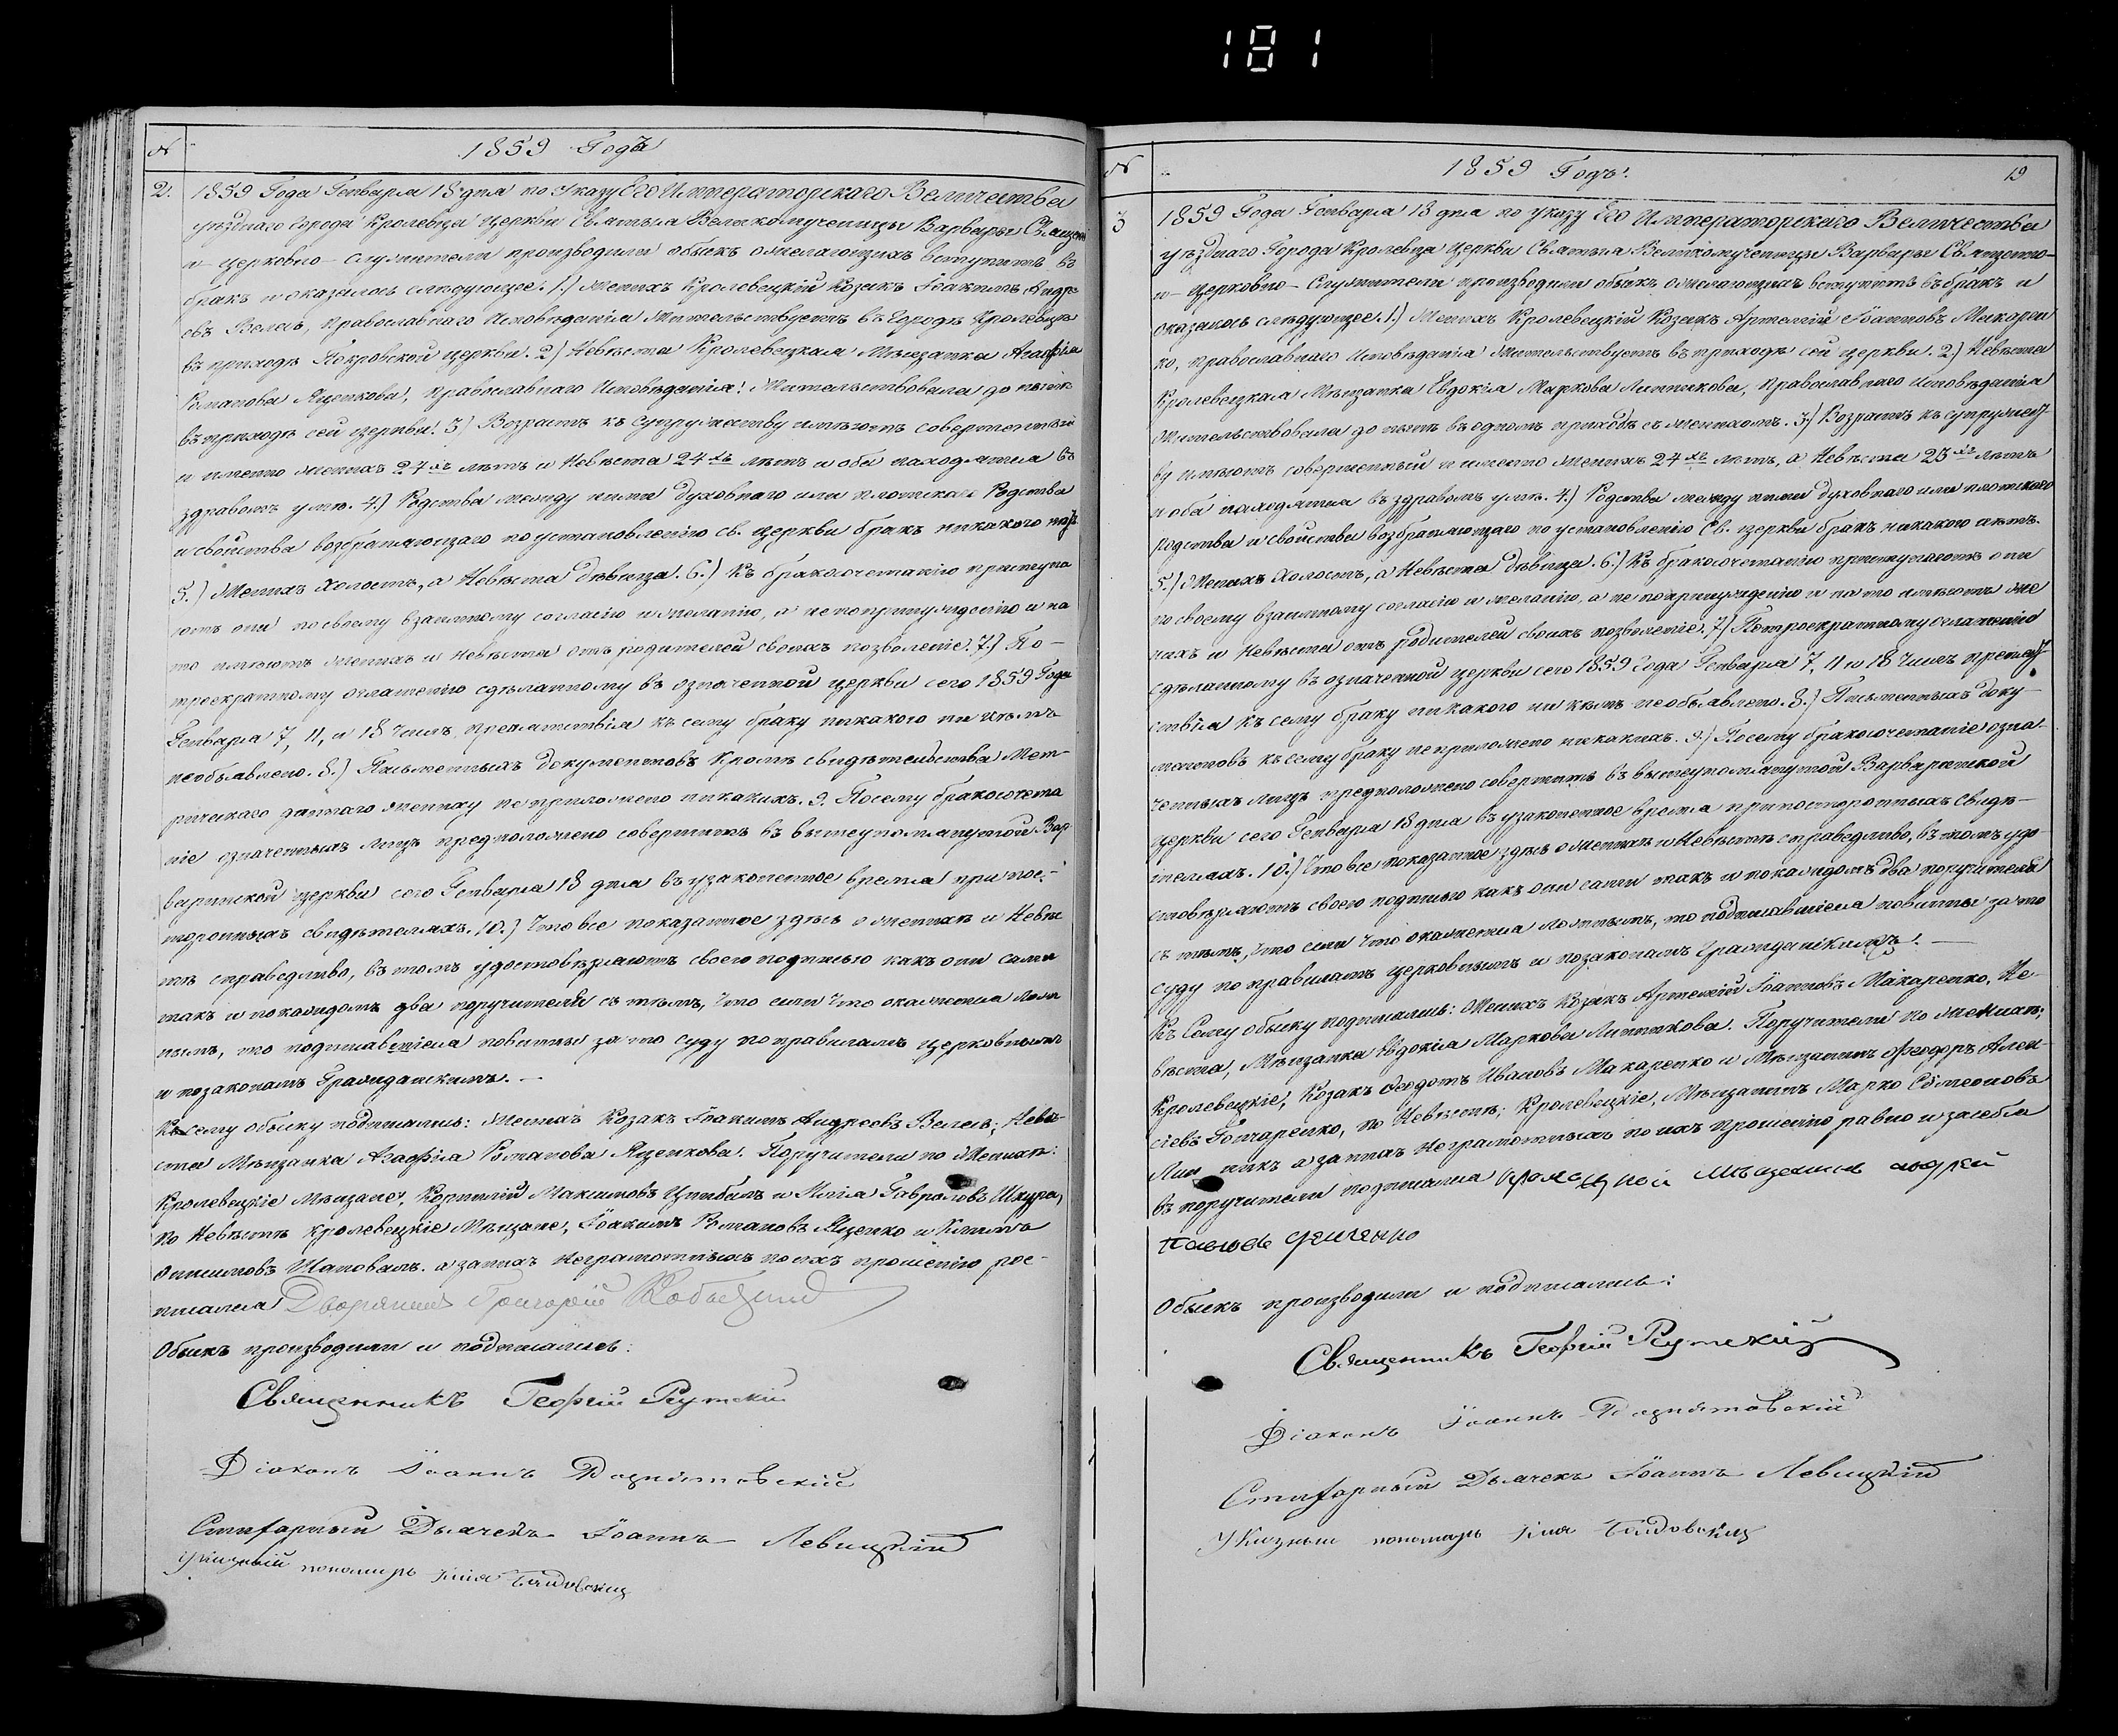 181
№ 1859 Годъ
2. 1859 Года Генваря 18 дня по указу Его Императорскаго Величества
уѣзднаго Города Кролевца церкви Святыя Великомученицы Варвары Священно
и церковно-служители производили обыскъ о желающихъ вступить въ
бракъ и оказалось слѣдующее: 1.) Женихъ Кролевецкій Козакъ Іоакимъ Андре
евъ Велесь, православнаго Исповѣданія жительствуетъ въ Городѣ Кролевцѣ
въ приходѣ Покровской церкви. 2.) Невѣста Кролевецкая Мѣщанка Агафія
Романова Яценкова, православнаго Исповѣданія: жительствовала до нынѣ
въ приходѣ сей церкви. 3) Возрастъ къ супружеству имѣютъ совершенный
и именно женихъ 24хъ лѣтъ и Невѣста 24хъ лѣтъ и оба находятся въ
здравомъ умѣ. 4.) Родства между ними духовнаго или плотскаго Родства
и свойства возбраняющаго по установленію св. церкви бракъ никакого нѣтъ
5.) Женихъ холостъ, а Невѣста дѣвица. 6.) Къ бракосочетанію приступа
ютъ они по своему взаимному согласію и желанію, а не по принужденію и на
то имѣютъ женихъ и невѣста отъ родителей своихъ позволеніе. 7.) По-
троекратному оглашенію сдѣланному въ означенной церкви сего 1859 Года
Генваря 7, 11, и 18 чиселъ препятствія къ сему браку никакого ни кѣмъ
необъявлено. 8.) Письменныхъ документовъ кромѣ свидѣтельства Мет-
рическаго даннаго жениху не приложено никакихъ. 9. Посему бракосочета
ніе означенныхъ лицъ предположено совершить въ вышеупомянутой Вар
варинской церкви сего Генваря 18 дня въ узаконенное время при пос-
тороннихъ свидѣтеляхъ. 10.) Что все показанное здѣсь о женихѣ и Невѣс
тѣ справедливо, въ томъ удостовѣряютъ своею подписью какъ они сами
такъ и по каждомъ два поручителя съ тѣмъ, что если что окажется лож
нымъ, то подписавшіеся повинны за то суду по правиламъ церковнымъ
и по законамъ Гражданскимъ. —
Къ сему обыску подписались: Женихъ Козакъ Іоакимъ Андреевъ Велесь; Невѣ-
ста Мѣщанка Агафія Романова Яценкова. Поручители по Женихѣ:
Кролевецкіе Мѣщане, Корнилій Максимовъ Цимбалъ и Илія Гавриловъ Шкура,
по Невѣстѣ кролевецкіе Мѣщане, Іоакимъ Романовъ Яценко и Климъ
Онисимовъ Шаповалъ. а за нихъ неграмотныхъ по ихъ прошенію рос-
писался Дворянинъ Григорій Кобызкий
Обыскъ производили и подписались:
Священникъ Георгій Рутскій
Діаконъ Іоаннъ Подгаевскій
Стихарный Дьячекъ Іоаннъ Левицкій
Указный пономарь Илія
№ 1859 Годъ. 19
3 1859 Года Генваря 18 дня по указу Его Императорскаго Величества
уѣзднаго Города Кролевца церкви Святыя Великомученицы Варвары Священно-
и-церковно-Служители производили обыскъ о желающихъ вступить въ бракъ и
оказалось слѣдующее: 1.) Женихъ Кролевецкій Козакъ Артемій Іоанновъ Макарен
ко, православнаго Исповѣданія жительствуетъ въ приходѣ сей церкви. 2.) Невѣста
Кролевецкая Мѣщанка Евдокія Маркова Линникова, православнаго Исповѣданія
жительствовала до нынѣ въ одномъ приходѣ съ женихомъ. 3.) Возрастъ къ супружест
ву имѣютъ совершенный и именно женихъ 24хъ лѣтъ, а Невѣста 23хъ лѣтъ
и оба находятся въ здравомъ умѣ. 4.) Родства между ними духовнаго или плотскаго
родства и свойства возбраняющаго по установленію Св. церкви бракъ никакого нѣтъ.
5.) Женихъ холостъ, а Невѣста дѣвица. 6.) Къ бракосочетанію приступаютъ они
по своему взаимному согласію и желанію, а не по принужденію и на то имѣютъ же
нихъ и Невѣста отъ родителей своихъ позволеніе. 7.) По троекратному оглашенію
сдѣланному въ означенной церкви сего 1859 Года Генваря 7, 11 и 18 чиселъ препят
ствія къ сему браку никакого ни кѣмъ необъявлено. 8.) Письменныхъ доку-
ментовъ къ сему браку не приложено никакихъ. 9.) Посему бракосочетаніе озна-
ченныхъ лицъ предположено совершить въ вышеупомянутой Варваринской
церкви сего Генваря 18 дня въ узаконенное время при постороннихъ свидѣ-
теляхъ. 10.) Что все показанное здѣсь о женихѣ и Невѣстѣ справедливо, въ томъ удо
стовѣряютъ своею подписью какъ они сами такъ и по каждомъ два поручителя
съ тѣмъ, что если что окажется ложнымъ, то подписавшіеся повинны за то
суду по правиламъ церковнымъ и по законамъ Гражданскимъ. —
Къ Сему обыску подписались: Женихъ Козакъ Артемій Іоанновъ Макаренко, Не-
вѣста, Мѣщанка Евдокія Маркова Линникова. Поручители по Женихѣ;
Кролевецкіе, Козакъ Феодотъ Ивановъ Макаренко и Мѣщанинъ Феодоръ Алек-
сіевъ Гончаренко, по Невѣстѣ; Кролевецкіе, Мѣщанинъ Марко Симеоновъ
Лин никъ а за нихъ неграмотныхъ по ихъ прошенію равно и за себя
въ поручители подписался Мѣщанинъ Андрей
Обыскъ производили и подписались:
Священникъ Георгій Рутскій
Діаконъ Іоаннъ Подгаевскій
Стихарный Дьячекъ Іоаннъ Левицкій
Указный пономарь Илія